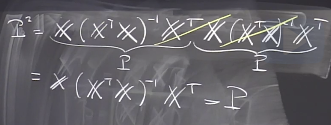 P² = X(XᵀX)⁻¹XᵀX(XᵀX)⁻¹Xᵀ
P P
= X(XᵀX)⁻¹Xᵀ = P